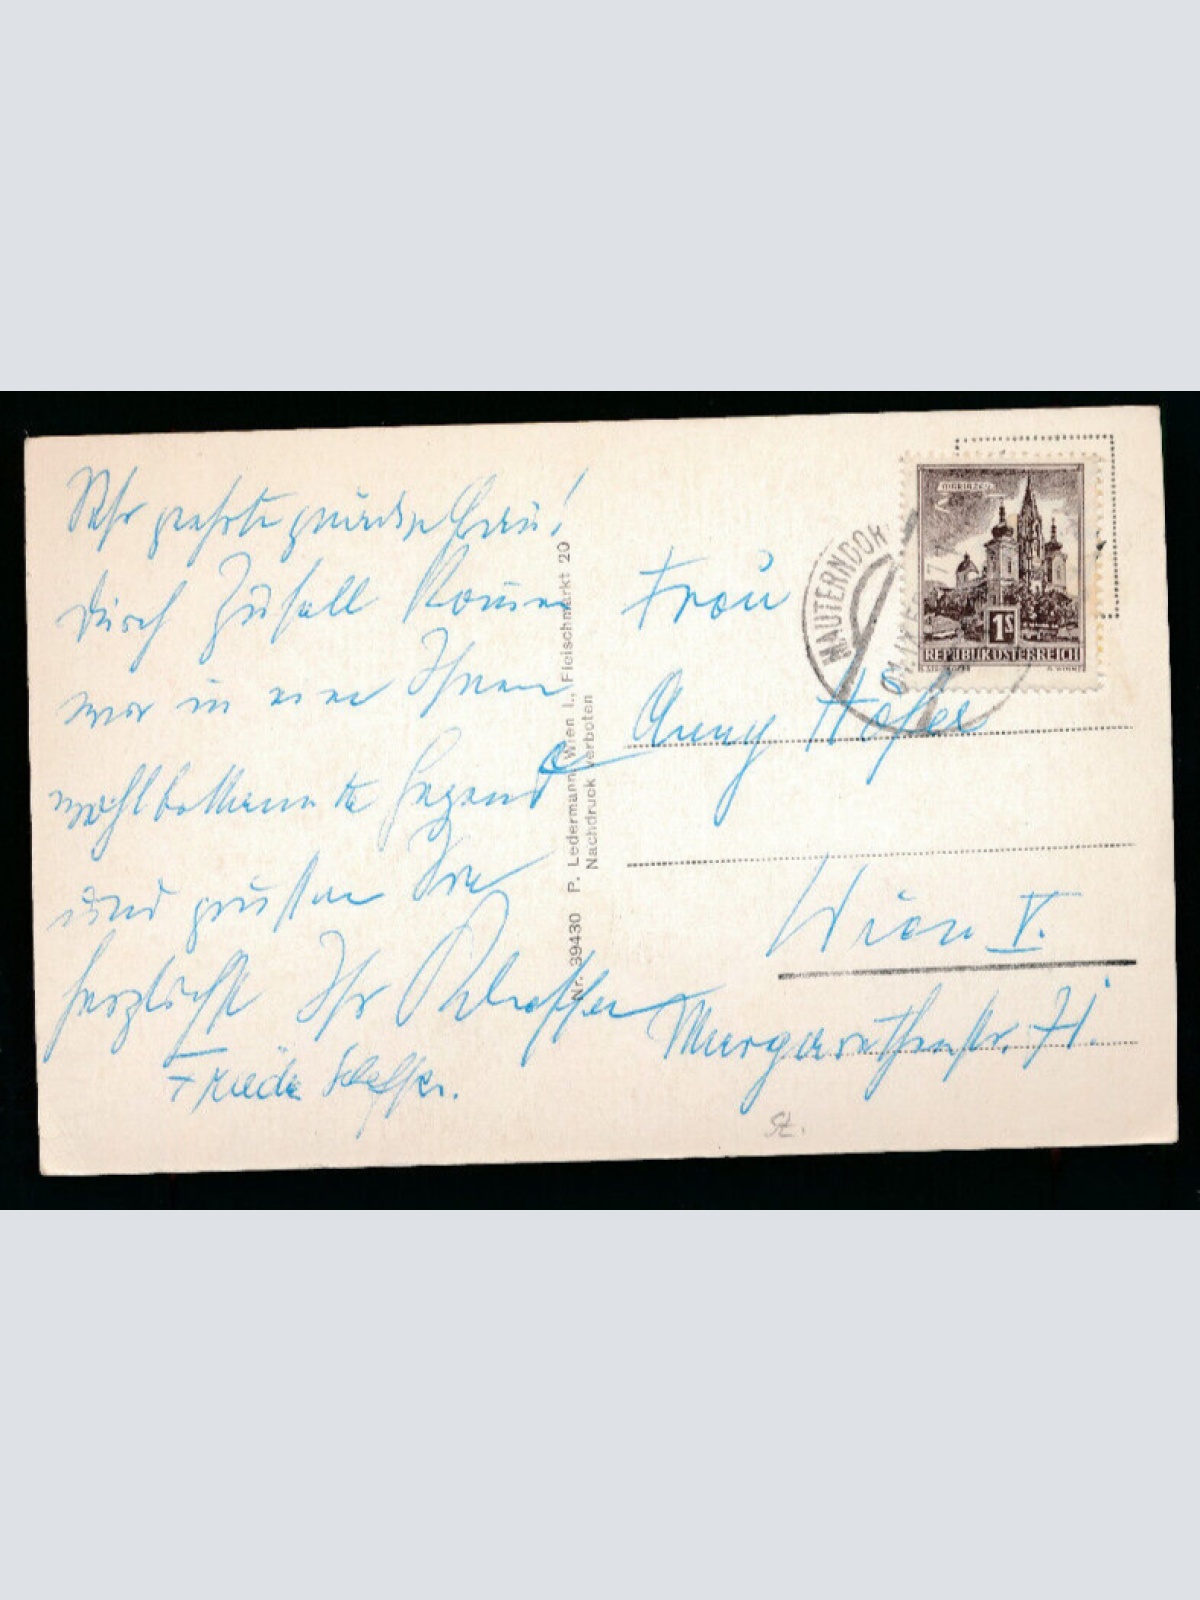 Sehr geehrte gnädige Frau!
Durch Zufall kamen
wir in eine Ihnen
wohlbekannte Gegend
und grüssen Sie
herzlichst Ihr
Friede
Nr. 39430 P. Ledermann, Wien I., Fleischmarkt 20
Nachdruck verboten
MAUTERNDOR
MARIAZELL
1S
REPUBLIK ÖSTERREICH
Frau
Anny Höfer
Wien V.
Margarethenstr. 71.
St.